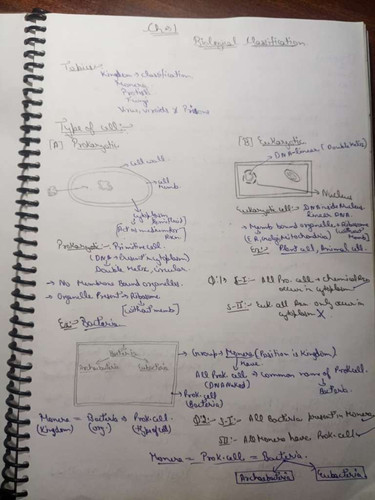 Ch 01
Biological Classification
Kingdom → classification
Monera
Protista
Fungi
Virus, viroids
Type of cell:-
[A] Prokaryotic
[B] Eukaryotic
DNA-linear (Double helix)
Cell wall
Cell memb.
cytoplasm
Nucleus
Eukaryotic cell:-
linear DNA.
Prokaryotic:- Primitive cell.
(DNA → Present in cytoplasm)
Double Helix, circular.
→ Memb bound organelle + Ribosome
Eg:- Plant cell, Animal cell.
→ No Membrane Bound organelles.
→ Organelle Present is Ribosome
(without memb)
Q.1) S-I:- All Pro. cell →
occur in cytoplasm
S-II:- Euk. all Rxn only occur in
cytoplasm X
Eg:- Bacteria
Bacteria
Archaebacteria
Eubacteria
→ Group → Monera (Position is Kingdom)
have
All Prok. cell → Common name of Prok. cell
(DNA Naked)
Bacteria.
Prok. cell
(Bacteria)
Monera = Bacteria → Prok. cell
(Kingdom) (org.) (Type of cell)
Q.2:- S-I:- All Bacteria present in Monera
SII:- All Monera have Prok-cell
Monera = Prok. cell = Bacteria.
Archaebacteria
Eubacteria